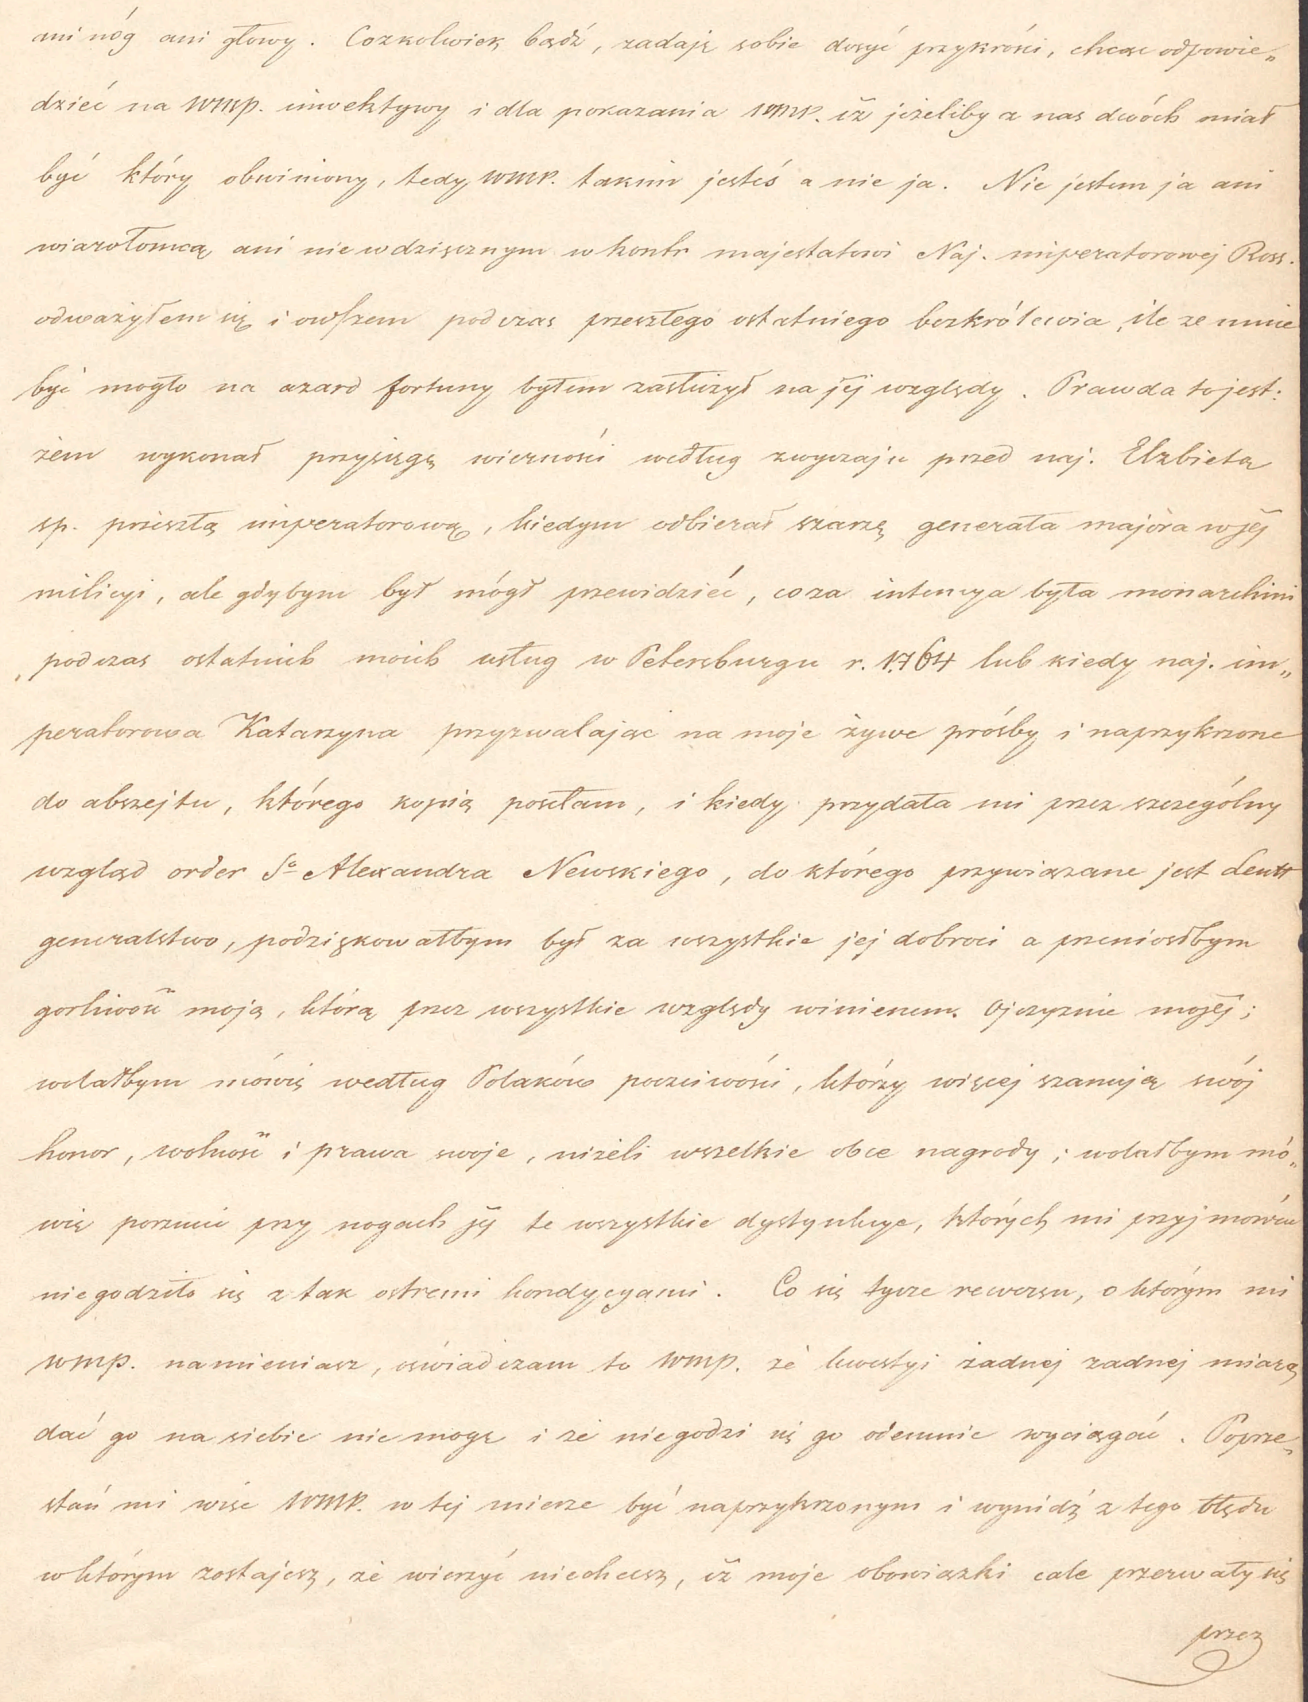 ani nóg ani głowy. Cozkolwiek bądź, zadaję sobie dosyć przykrości, chcąc odpowie„
dzieć na WMP. inwektywy i dla pokazania WMP. iż jeżeliby z nas dwóch miał
być który obwiniony, tedy WMP. takim jesteś a nie ja. Nie jestem ja ani
wiarołomcą ani niewdzięcznym w kontr majestatowi Naj. imperatorowej Ross.
odważyłem się i owszem podczas przeszłego ostatniego bezkrólewia, ile ze mnie
być mogło na azard fortuny byłem zasłużył na jéj względy. Prawda to jest:
żem wykonał przysięgę wierności według zwyczaju przed naj. Elżbietą
sp. przeszłą imperatorową, kiedym odbierał szarżę generała majora w jéj
milicyi, ale gdybym był mógł przewidzieć, co za intencya była monarchini
podczas ostatnich moich usług w Petersburgu r. 1764 lub kiedy naj. im„
peratorowa Katarzyna przyzwalając na moje żywe prośby i naprzykrzone
do abszejtu, którego kopią posełam, i kiedy przydała mi przez szczególny
wzgląd order So Alexandra Newskiego, do którego przywiązane jest Leutt
generalstwo, podziękowałbym był za wszystkie jej dobroci a przeniosłbym
gorliwość moją, którą przez wszystkie względy winienem Ojczyznie mojéj;
wolałbym mówię według Polaków poczciwości, którzy więcej szanują swój
honor, wolność i prawa swoje, niżeli wszelkie obce nagrody; wolałbym mó„
wię porzucić przy nogach jéj te wszystkie dystynkcye, których mi przyjmować
niegodziło się z tak ostremi kondycyami. Co się tycze rewersu, o którym mi
WMP. namieniasz, oświadczam to WMP. że kwestyi żadnej żadnej miarą
dać go na siebie nie mogę i że niegodzi się go odemnie wyciągać. Poprze„
stań mi więc WMP. w tej mierze być naprzykrzonym i wynidź z tego błędu
w którym zostajesz, że wierzyć niechcesz, iż moje obowiązki cale przerwały się
przez